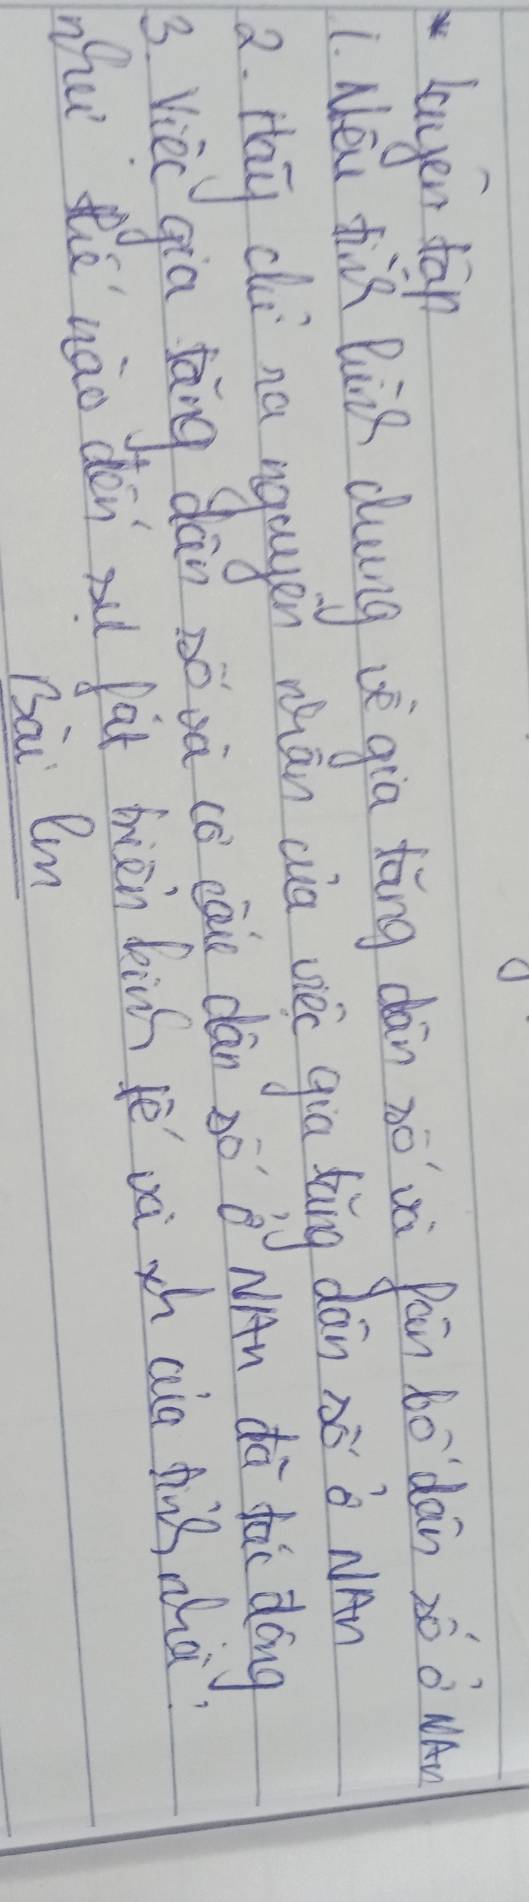 * Luyện tập
1. Nêu tình hình chung về gia tăng dân số và fân bố dân số ở NAn
2. Hãy chỉ ra nguyên nhân của việc gia tăng dân số ở NAn
3. Việc gia tăng dân số và cơ cấu dân số ở NAn đã tác động
như thế nào đến sự fát triển kinh tế và xh của tỉnh nhà?
Bài lm